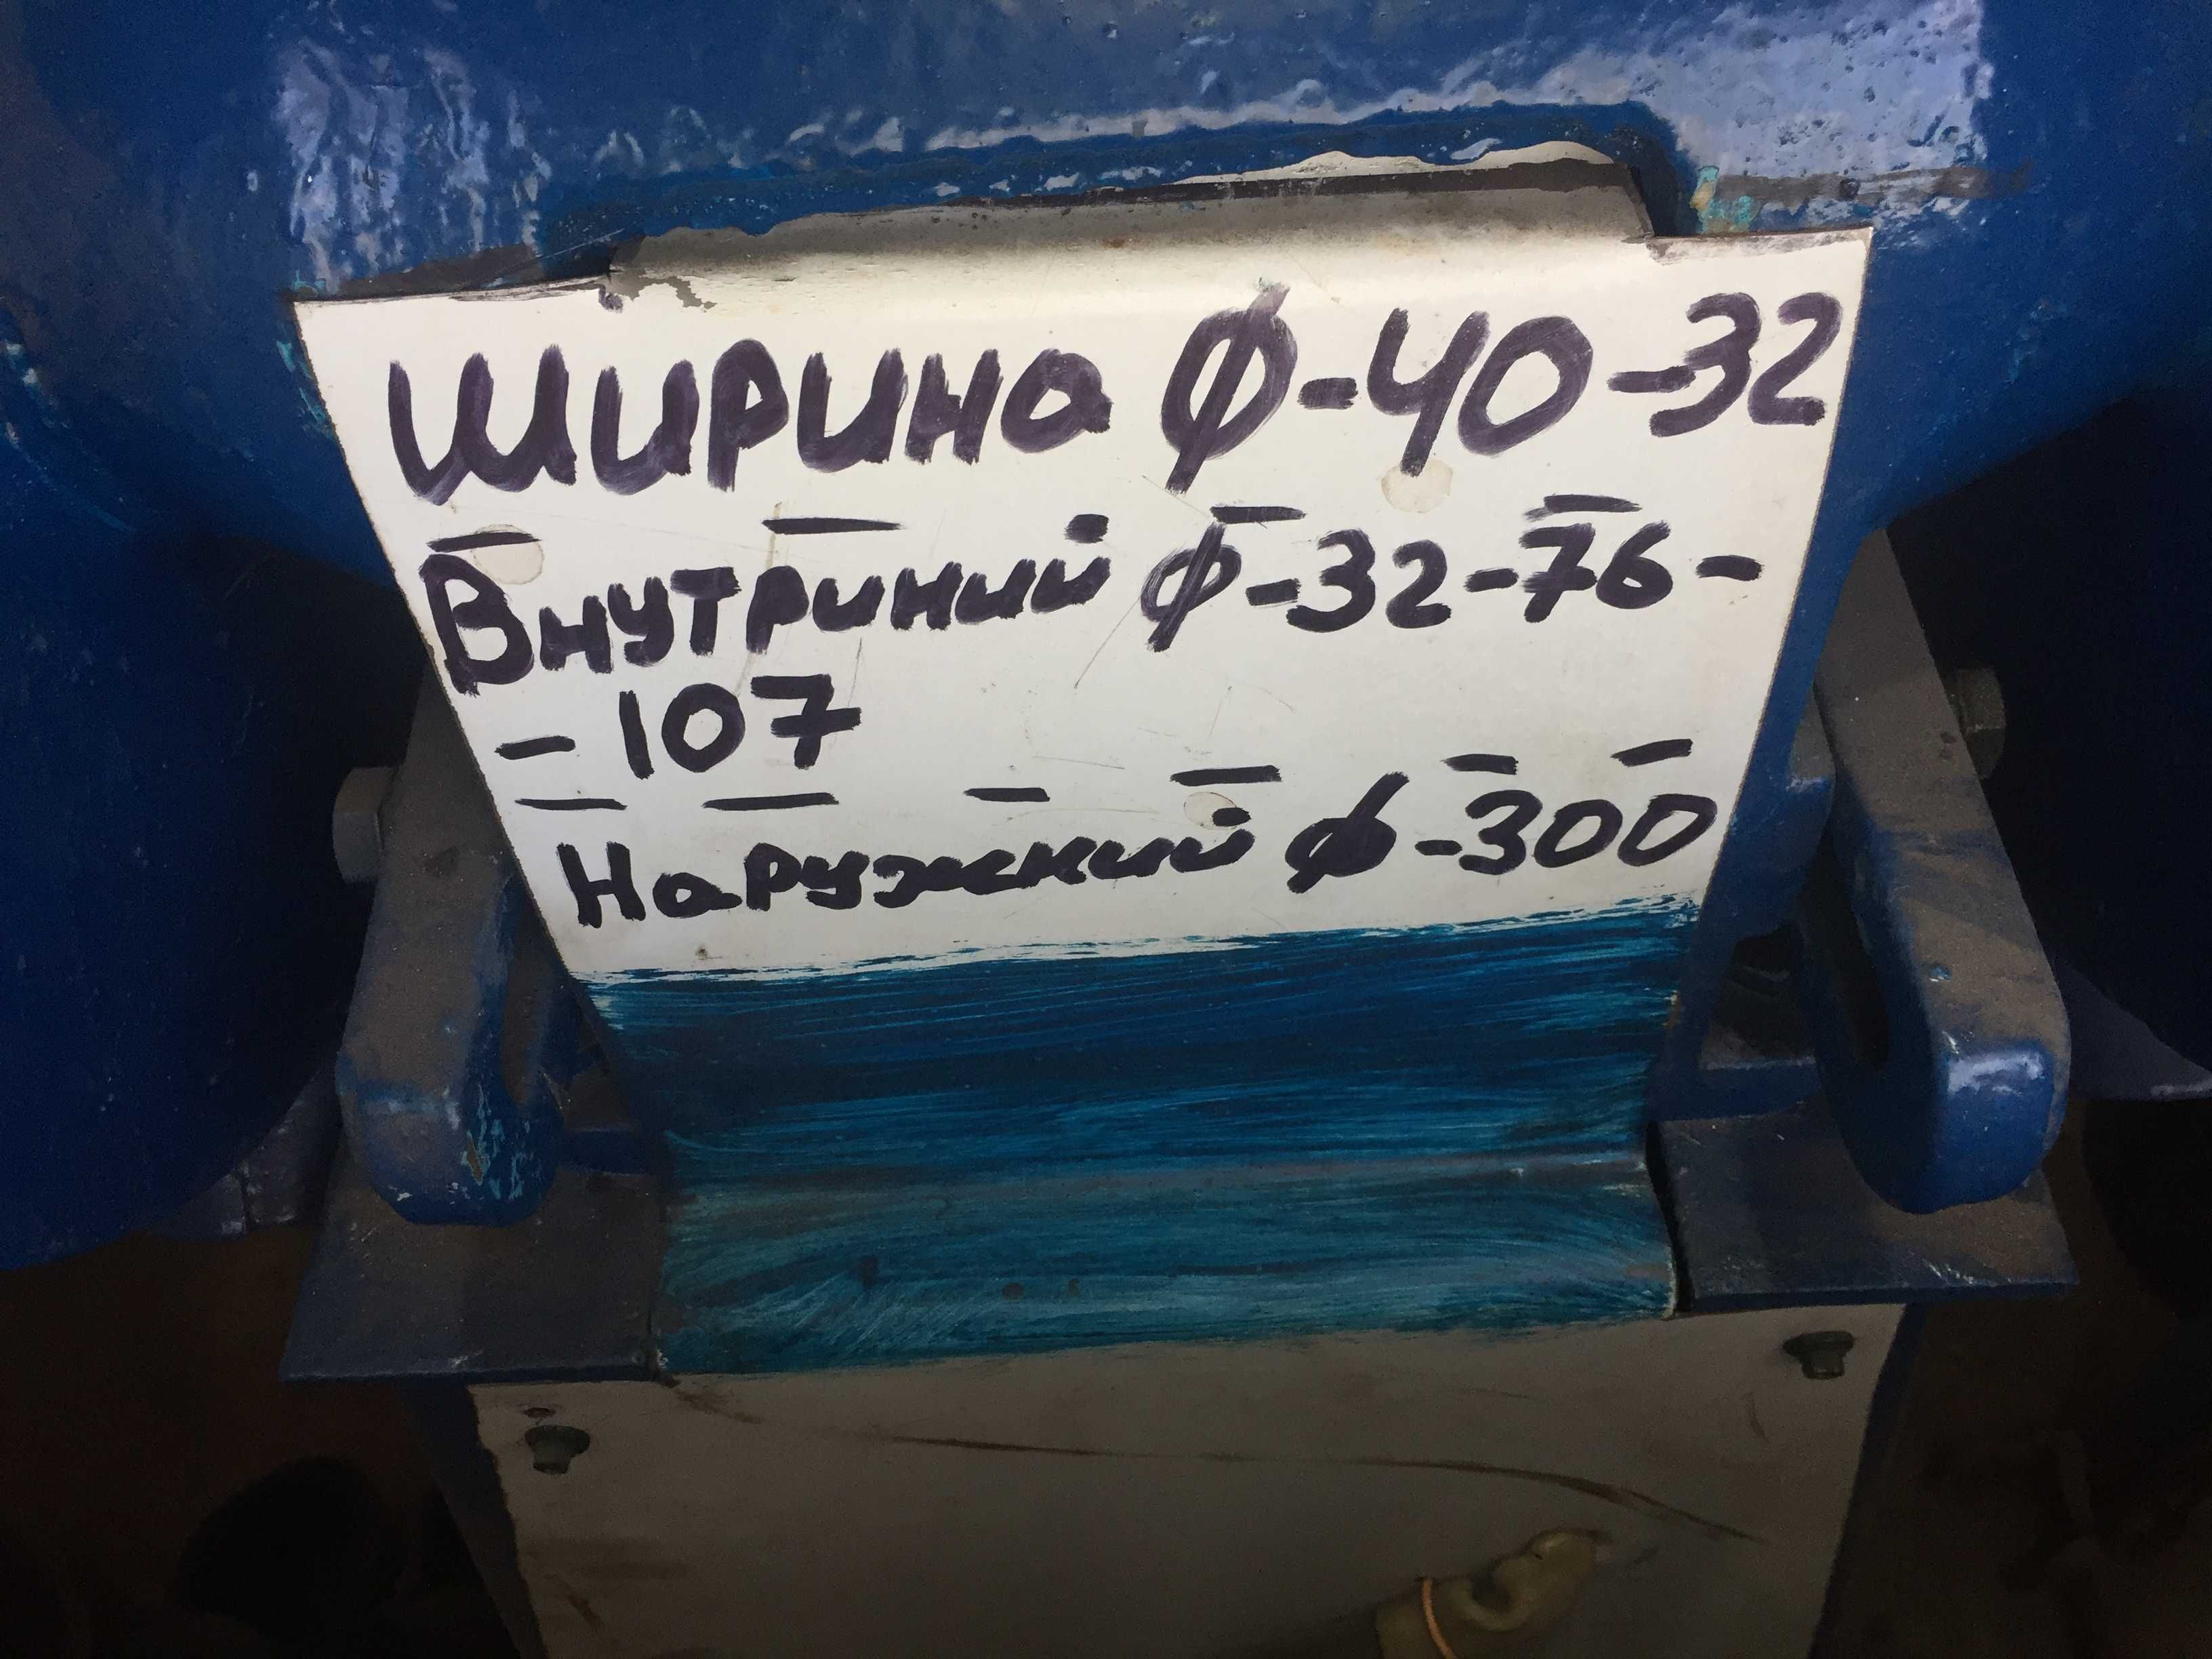 Ширина Ф-40-32
Внутриний Ф-32-76-
-107
Наружний Ф-300